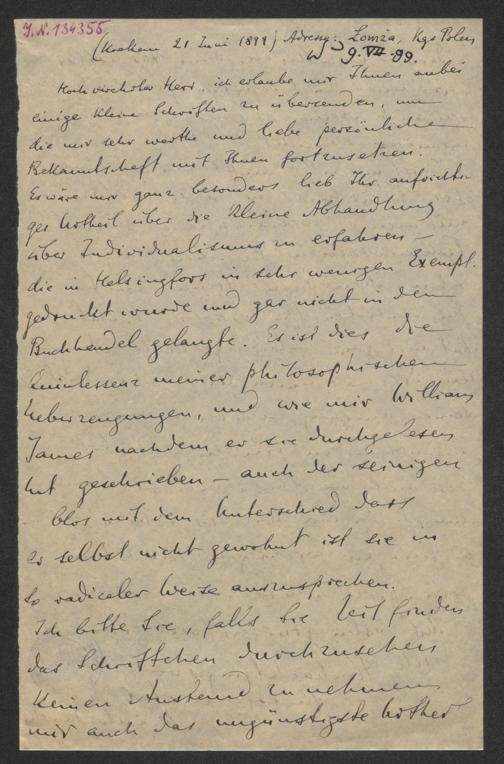 J.N. 134355
(Krakau 21 Juni 1899) Adresse: Lomża, Kgr Polen
9. VII. 99.
Hochverehrter Herr, ich erlaube mir Ihnen anbei
einige kleine Schriften zu übersenden, um
die mir sehr werthe und liebe persönliche
Bekanntschaft mit Ihnen fortzusetzen.
Es wäre mir ganz besonders lieb Ihr aufrichti-
ges Urtheil über die kleine Abhandlung
über Individualismus zu erfahren –
die in Helsingfors in sehr wenigen Exempl.
gedruckt wurde und gar nicht in den
Buchhandel gelangte. Es ist dies die
Quintessenz meiner philosophischen
Ueberzeugungen, und wie mir William
James nachdem er sie durchgelesen
hat geschrieben – auch der seinigen
– blos mit dem Unterschied dass
er selbst nicht gewohnt ist sie in
so radicaler Weise auszusprechen.
Ich bitte Sie, falls Sie Zeit finden
das Schriftchen durchzusehen
keinen Anstand zu nehmen
mir auch das ungünstigste Urtheil